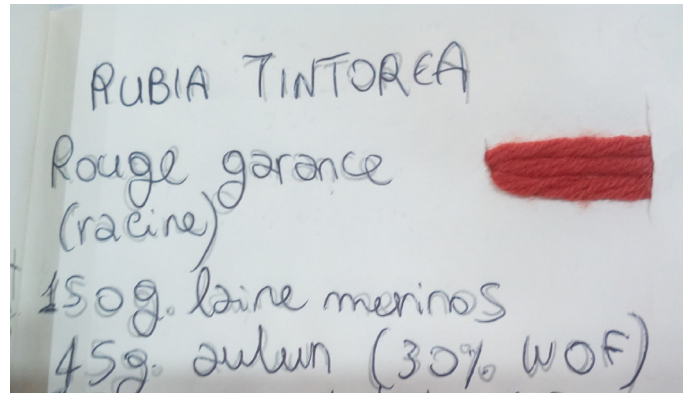 RUBIA TINTOREA
Rouge garance
(racine)
150g. laine merinos
45g. aulun (30% WOF)